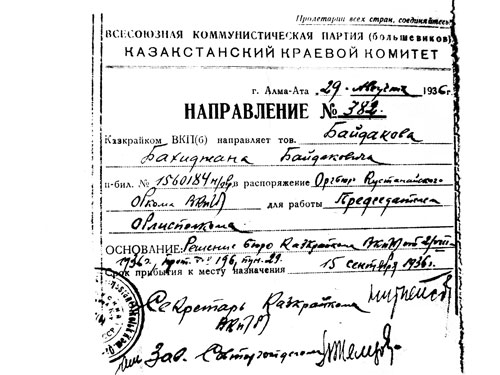 Пролетарии всех стран, соединяйтесь
ВСЕСОЮЗНАЯ КОММУНИСТИЧЕСКАЯ ПАРТИЯ (большевиков)
КАЗАКСТАНСКИЙ КРАЕВОЙ КОМИТЕТ
г. Алма-Ата 29 Августа 1936 г.
НАПРАВЛЕНИЕ № 382
Казкрайком ВКП(б) направляет тов. Байдакова
Бахиджана Байдаковича
п-бил. № 1560184 в распоряжение Оргбюро Кустанайского
Обкома ВКП(б) для работы Председателя
Облисполкома
ОСНОВАНИЕ: Решение бюро Казкрайкома ВКП(б) от
1936 г. прот. № 196, пун. 29.
срок прибытия к месту назначения 15 сентября 1936 г.
Секретарь Казкрайкома
ВКП(б)
Зав.